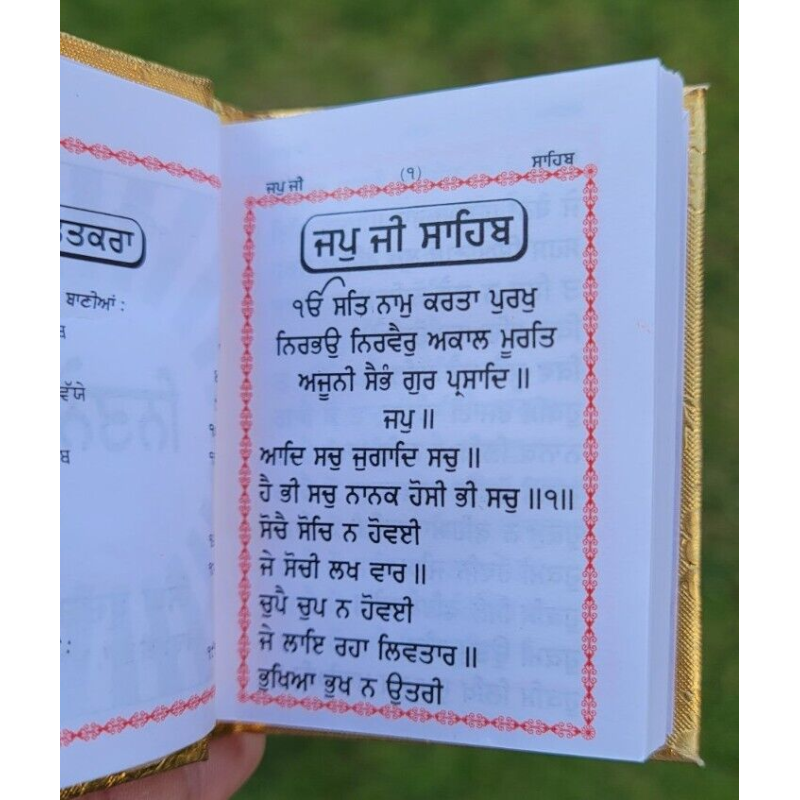 ਤਕਰਾ
ਬਾਣੀਆਂ :
ਜਪੁ ਜੀ (੧) ਸਾਹਿਬ
ਜਪੁ ਜੀ ਸਾਹਿਬ
ੴ ਸਤਿ ਨਾਮੁ ਕਰਤਾ ਪੁਰਖੁ
ਨਿਰਭਉ ਨਿਰਵੈਰੁ ਅਕਾਲ ਮੂਰਤਿ
ਅਜੂਨੀ ਸੈਭੰ ਗੁਰ ਪ੍ਰਸਾਦਿ॥
ਜਪੁ॥
ਆਦਿ ਸਚੁ ਜੁਗਾਦਿ ਸਚੁ॥
ਹੈ ਭੀ ਸਚੁ ਨਾਨਕ ਹੋਸੀ ਭੀ ਸਚੁ॥੧॥
ਸੋਚੈ ਸੋਚਿ ਨ ਹੋਵਈ
ਜੇ ਸੋਚੀ ਲਖ ਵਾਰ॥
ਚੁਪੈ ਚੁਪ ਨ ਹੋਵਈ
ਜੇ ਲਾਇ ਰਹਾ ਲਿਵਤਾਰ॥
ਭੁਖਿਆ ਭੁਖ ਨ ਉਤਰੀ